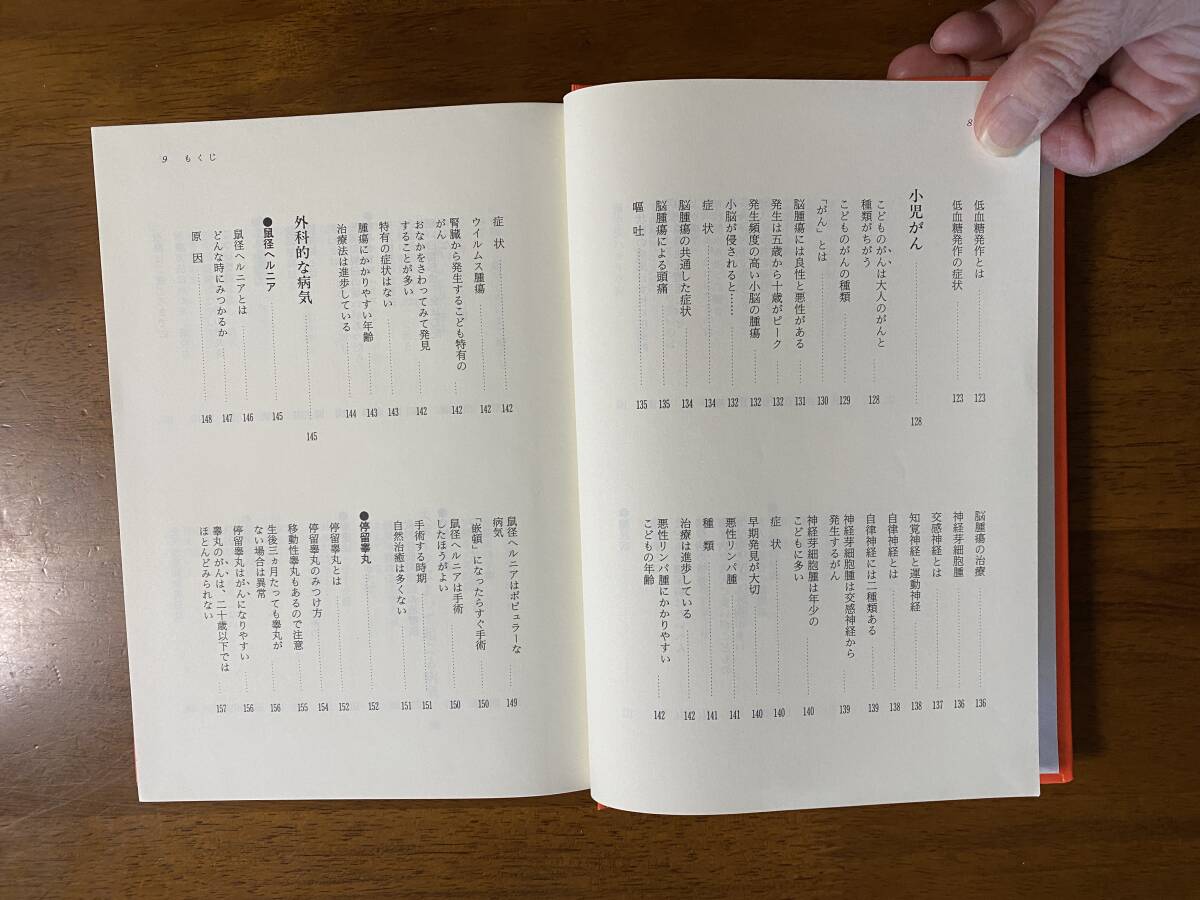 8
低血糖発作とは……………123
低血糖発作の症状……………123
小児がん……………128
こどものがんは大人のがんと
種類がちがう……………128
こどものがんの種類……………129
「がん」とは……………130
脳腫瘍には良性と悪性がある……………131
発生は五歳から十歳がピーク……………132
発生頻度の高い小脳の腫瘍……………132
小脳が侵されると…………………132
症状……………134
脳腫瘍の共通した症状……………134
脳腫瘍による頭痛……………135
嘔吐……………135
脳腫瘍の治療……………136
神経芽細胞腫……………136
交感神経とは……………137
知覚神経と運動神経……………138
自律神経とは……………138
自律神経には二種類ある……………139
神経芽細胞腫は交感神経から
発生するがん……………139
神経芽細胞腫は年少の
こどもに多い……………140
症状……………140
早期発見が大切……………140
悪性リンパ腫……………141
種類……………141
治療は進歩している……………142
悪性リンパ腫にかかりやすい
こどもの年齢……………142
9 もくじ
症状……………142
ウイルムス腫瘍……………142
腎臓から発生するこども特有の
がん……………142
おなかをさわってみて発見
することが多い……………142
特有の症状はない……………143
腫瘍にかかりやすい年齢……………143
治療法は進歩している……………144
外科的な病気……………145
●鼠径ヘルニア……………145
鼠径ヘルニアとは……………146
どんな時にみつかるか……………147
原因……………148
鼠径ヘルニアはポピュラーな
病気……………149
「嵌頓」になったらすぐ手術……………150
鼠径ヘルニアは手術
したほうがよい……………150
手術する時期……………151
自然治癒は多くない……………151
●停留睾丸……………152
停留睾丸とは……………152
停留睾丸のみつけ方……………154
移動性睾丸もあるので注意……………155
生後三ヵ月たっても睾丸が
ない場合は異常……………156
停留睾丸はがんになりやすい……………156
睾丸のがんは、二十歳以下では
ほとんどみられない……………157